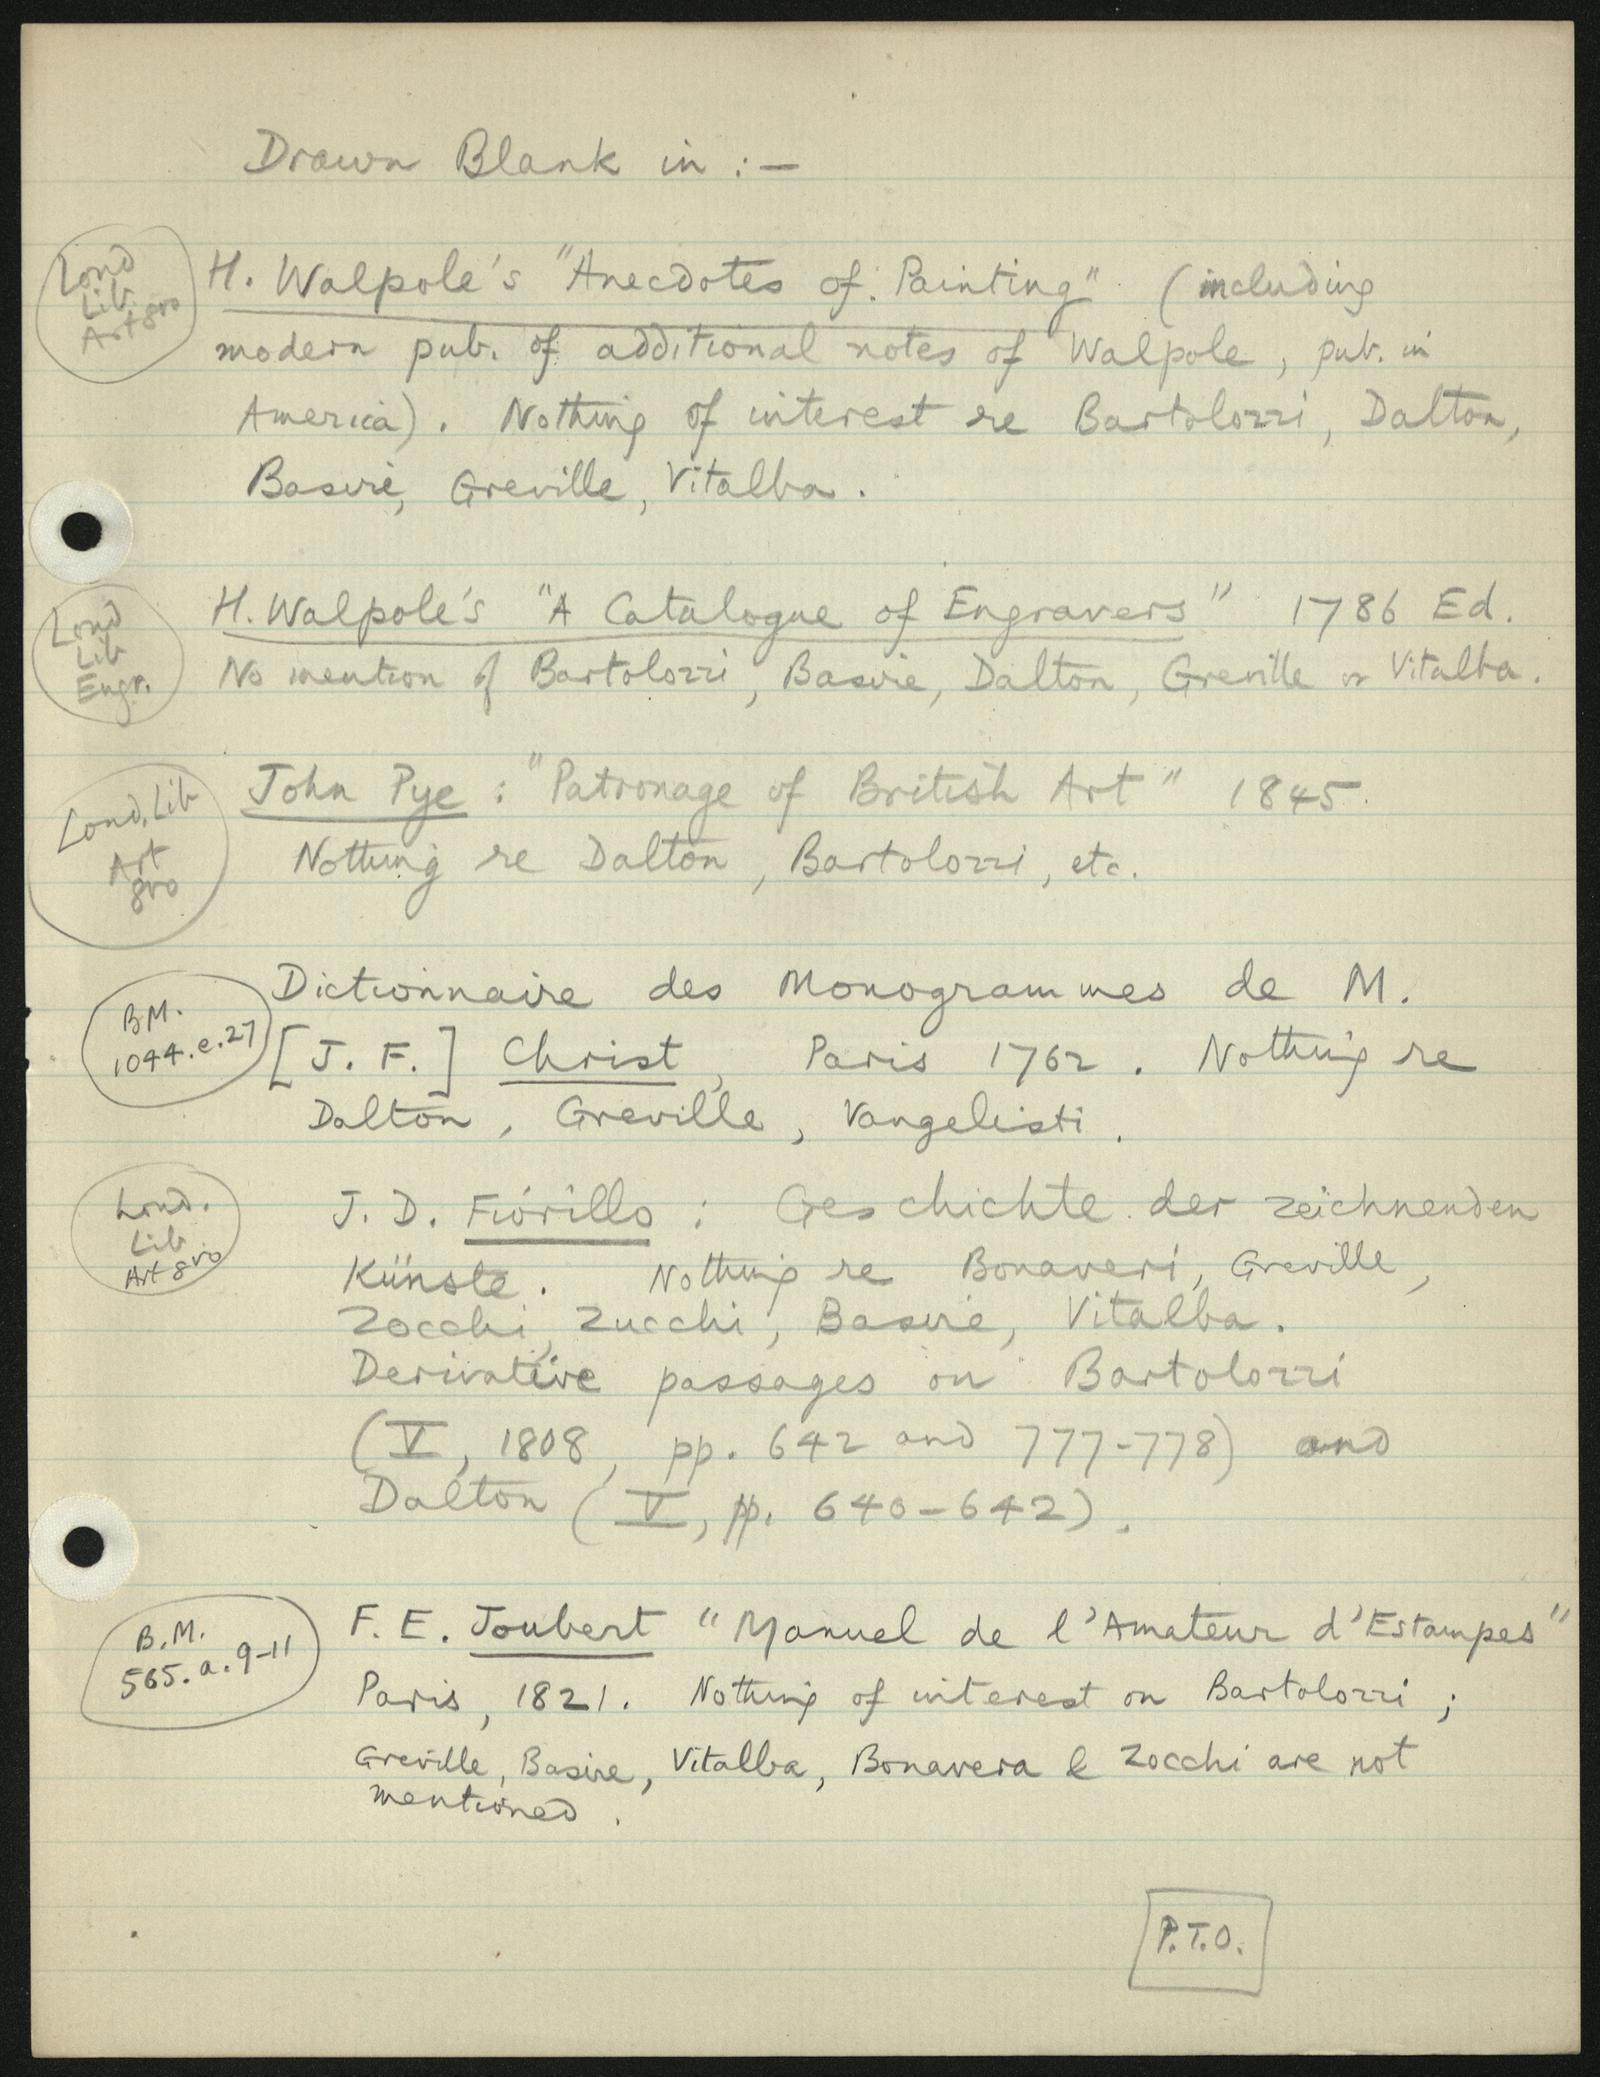 Drawn Blank in :—
Lond
Lib
Art 8vo
H. Walpole's "Anecdotes of Painting" (including
modern pub. of additional notes of Walpole, pub. in
America). Nothing of interest re Bartolozzi, Dalton,
Basire, Greville, Vitalba.
Lond
Lib
Engr.
H. Walpole's "A Catalogue of Engravers" 1786 Ed.
No mention of Bartolozzi, Basire, Dalton, Greville or Vitalba.
Lond. Lib
Art
8vo
John Pye : "Patronage of British Art" 1845.
Nothing re Dalton, Bartolozzi, etc.
BM.
1044.e.27
Dictionnaire des Monogrammes de M.
[J. F.] Christ, Paris 1762. Nothing re
Dalton, Greville, Vangelisti.
Lond.
Lib
Art 8vo
J. D. Fiorillo : Geschichte der zeichnenden
Künste. Nothing re Bonaveri, Greville,
Zocchi, Zucchi, Basire, Vitalba.
Derivative passages on Bartolozzi
(V, 1808, pp. 642 and 777-778) and
Dalton (V, pp. 640-642).
B.M.
565.a.9-11
F. E. Joubert "Manuel de l'Amateur d'Estampes"
Paris, 1821. Nothing of interest on Bartolozzi;
Greville, Basire, Vitalba, Bonavera & Zocchi are not
mentioned.
P.T.O.